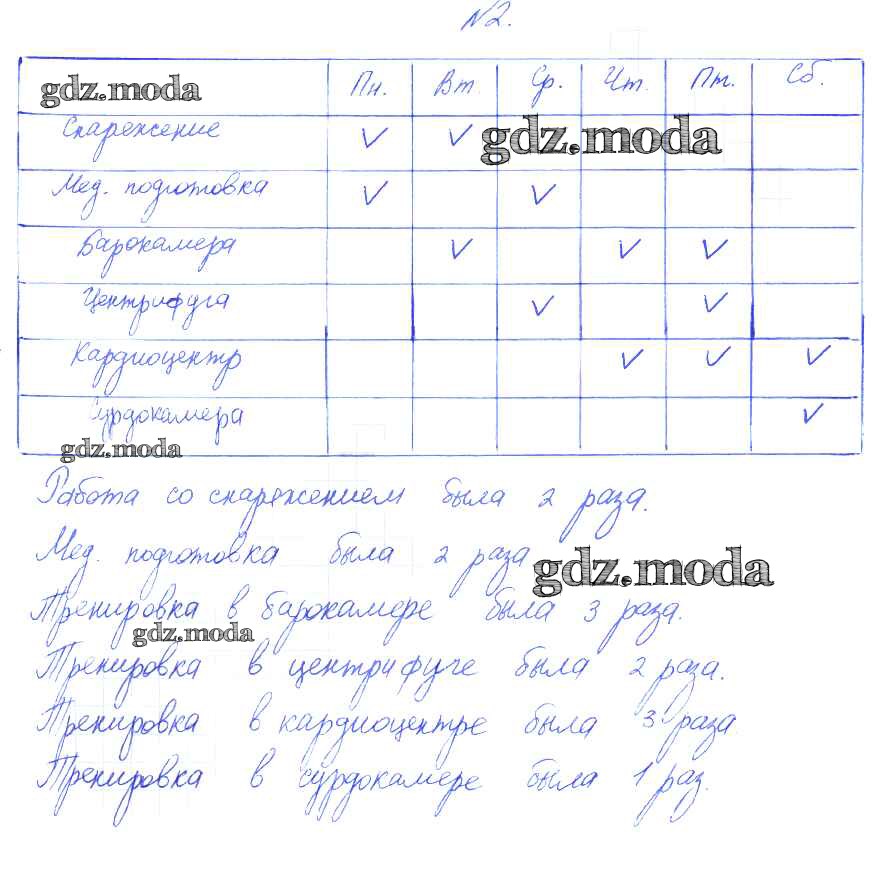 №2.
gdz.moda Пн. Вт. Ср. Чт. Пт. Сб.
Снаряжение ✓ ✓ gdz.moda
Мед. подготовка ✓ ✓
Барокамера ✓ ✓ ✓
Центрифуга ✓ ✓
Кардиоцентр ✓ ✓ ✓
Сурдокамера ✓
gdz.moda
Работа со снаряжением была 2 раза.
Мед. подготовка была 2 раза
gdz.moda
Тренировка в барокамере была 3 раза.
gdz.moda
Тренировка в центрифуге была 2 раза.
Тренировка в кардиоцентре была 3 раза
Тренировка в сурдокамере была 1 раз.